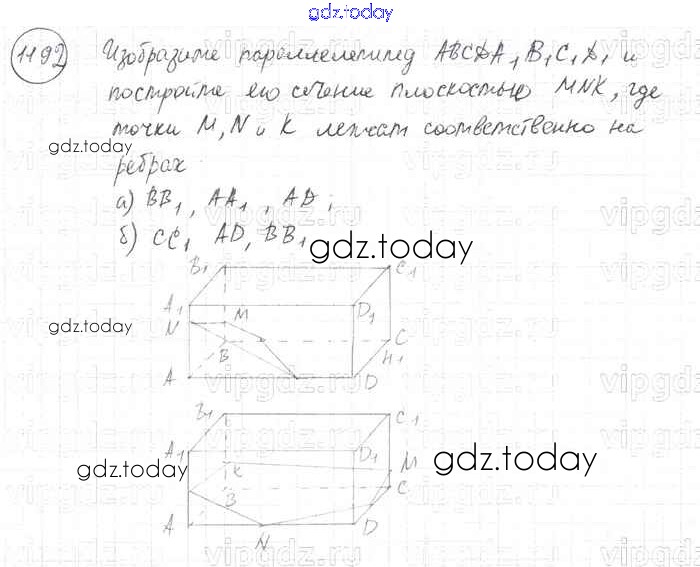 gdz.today
1192 Изобразите параллелепипед ABCDA₁B₁C₁D₁ и
постройте его сечение плоскостью MNK, где
точки M, N и K лежат соответственно на
ребрах
gdz.today
а) BB₁, AA₁, AD;
б) CC₁ AD, BB₁
gdz.today
B₁ C₁
A₁ D₁
gdz.today
N M
B C
H₁
A D
B₁ C₁
A₁ D₁
gdz.today gdz.today
K M
B C
A N D
vipgdz.ru